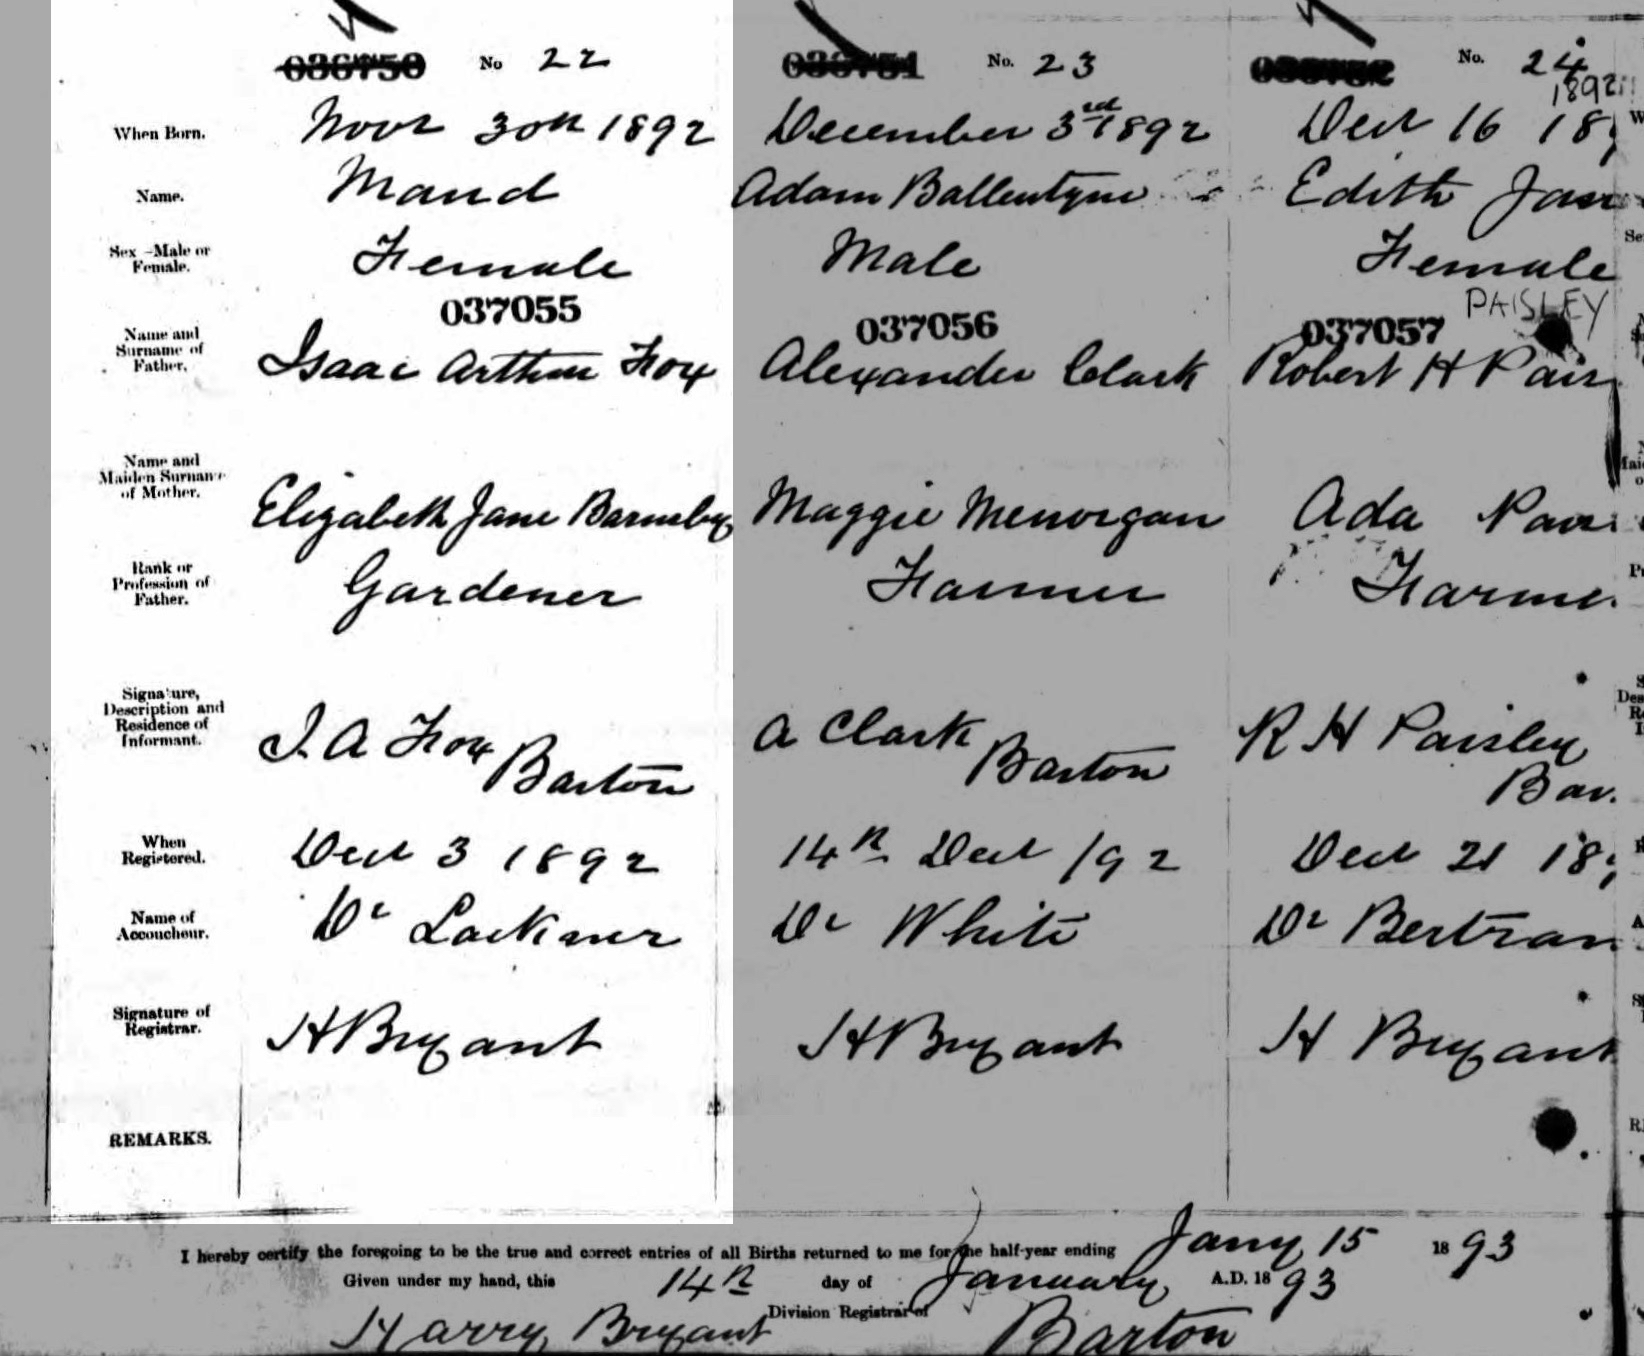 036750 No 22 036751 No. 23 036752 No. 24
1892
When Born. Novr 30th 1892 December 3rd 1892 Dect 16 18
Name. Maud Adam Ballentyne Edith Jan
Sex -Male or Female. Female Male Female
037055 037056 037057 PAISLEY
Name and Surname of Father. Isaac Arthur Fox Alexander Clark Robert H Pais
Name and Maiden Surname of Mother. Elizabeth Jane Barnsby Maggie Ada
Rank or Profession of Father. Gardener Farmer Farme
Signature, Description and Residence of Informant. I. A Fox Barton A Clark Barton R H Paisley Bar
When Registered. Dect 3 1892 14th Dect /92 Dect 21 18
Name of Accoucheur. Dr Dr White Dr Bertran
Signature of Registrar. H Bryant H Bryant H Bryant
REMARKS.
I hereby certify the foregoing to be the true and correct entries of all Births returned to me for the half-year ending Jany 15 1893
Given under my hand, this 14th day of January A.D. 1893
Harry Bryant Division Registrar of Barton